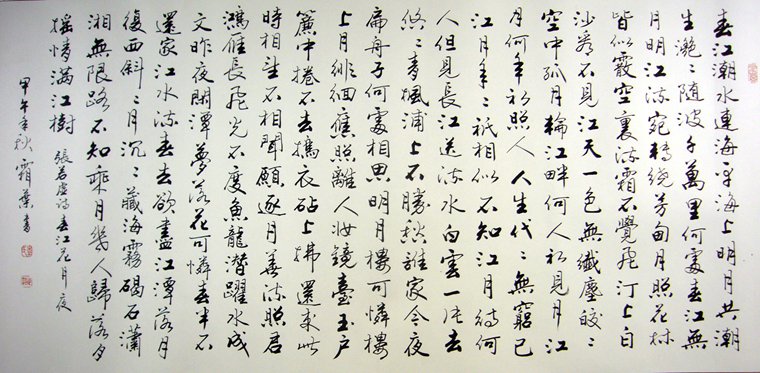 春江潮水連海平海上明月共潮
生灔〻随波千萬里何處春江無
月明江流宛轉繞芳甸月照花林
皆似霰空裏流霜不覺飛汀上白
沙看不見江天一色無纖塵皎〻
空中孤月輪江畔何人初見月江
月何年初照人人生代〻無窮已
江月年〻祇相似不知江月待何
人但見長江送流水白雲一片去
悠〻青楓浦上不勝愁誰家今夜
扁舟子何處相思明月樓可憐樓
上月徘徊應照離人妝鏡臺玉户
簾中捲不去擣衣砧上拂還來此
時相望不相聞願逐月華流照君
鴻雁長飛光不度魚龍潛躍水成
文昨夜閑潭夢落花可憐春半不
還家江水流春去欲盡江潭落月
復西斜〻月沉〻藏海霧碣石瀟
湘無限路不知乘月幾人歸落月
摇情滿江樹 張若虛詩春江花月夜
甲午年秋霜葉書